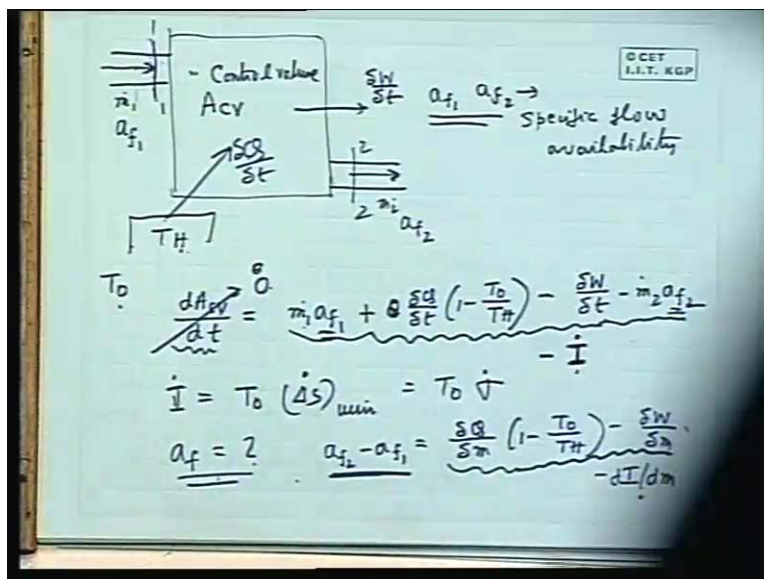 © CET
I.I.T. KGP
- Control volume
A_CV
1
1
ṁ_1
a_f1
δW/δt
a_f1 a_f2 →
specific flow
availability
δQ/δt
2
2
ṁ_2
a_f2
T_H
T_0
0
dA_CV/dt = ṁ_1 a_f1 + δQ/δt (1 - T_0/T_H) - δW/δt - ṁ_2 a_f2
- İ
İ = T_0 (Δ̇S)_uni = T_0 σ̇
a_f = ? a_f2 - a_f1 = δQ/δm (1 - T_0/T_H) - δW/δm
- dI/dm